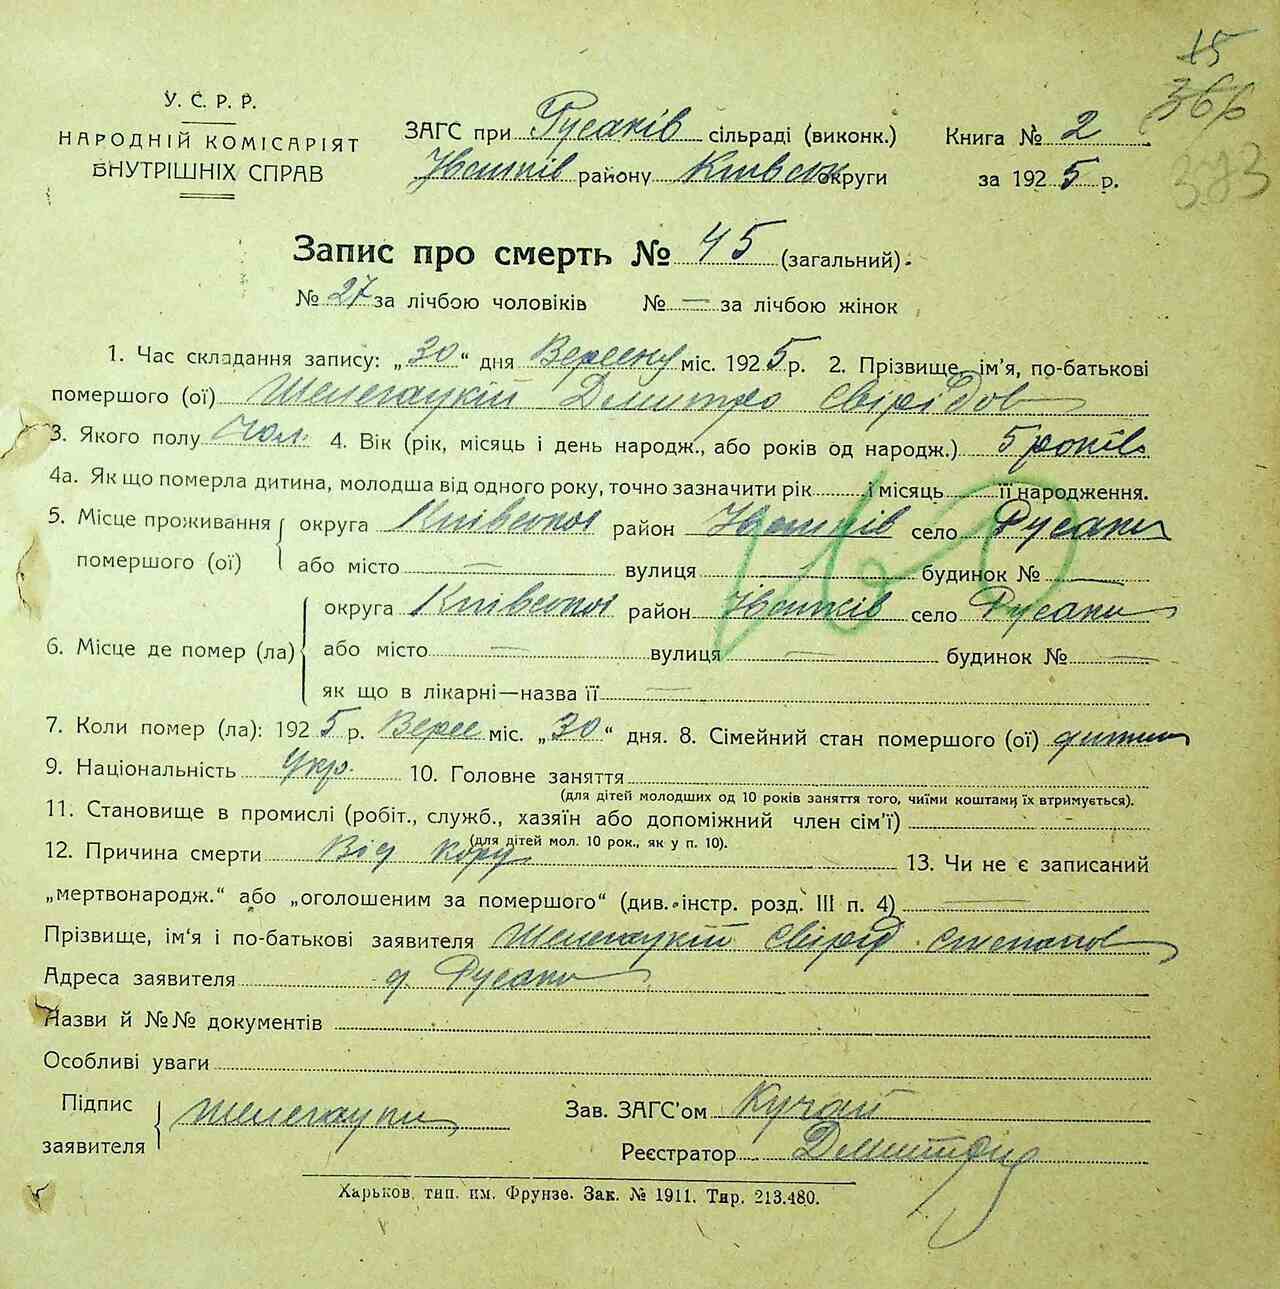 15
366
383
У. С. Р. Р.
НАРОДНІЙ КОМІСАРІЯТ
ВНУТРІШНІХ СПРАВ
ЗАГС при Русанів сільраді (виконк.)
Іванків району Київськ округи
Книга № 2
за 1925 р.
Запис про смерть № 45 (загальний)
№ 27 за лічбою чоловіків № — за лічбою жінок
1. Час складання запису: „30“ дня Вересня міс. 1925 р. 2. Прізвище, ім'я, по-батькові
помершого (ої) Дмитро Свірідов
3. Якого полу Чол. 4. Вік (рік, місяць і день народж., або років од народж.) 5 років
4а. Як що померла дитина, молодша від одного року, точно зазначити рік і місяць її народження.
5. Місце проживання помершого (ої) округа Київської район Іванків село Русанів
або місто — вулиця — будинок № —
6. Місце де помер (ла) округа Київської район Іванків село Русанів
або місто — вулиця — будинок № —
як що в лікарні—назва її —
7. Коли помер (ла): 1925 р. Верес міс. „30“ дня. 8. Сімейний стан помершого (ої) дитина
9. Національність Укр. 10. Головне заняття
(для дітей молодших од 10 років заняття того, чиїми коштами їх втримується).
11. Становище в промислі (робіт., служб., хазяїн або допоміжний член сім'ї)
(для дітей мол. 10 рок., як у п. 10).
12. Причина смерти Від кору 13. Чи не є записаний
„мертвонародж.“ або „оголошеним за помершого“ (див. інстр. розд. III п. 4) —
Прізвище, ім'я і по-батькові заявителя Свірід Степанов
Адреса заявителя д. Русанів
Назви й №№ документів
Особливі уваги
Підпис заявителя
Зав. ЗАГС'ом Кучай
Реєстратор
Харьков, тип. им. Фрунзе. Зак. № 1911. Тир. 213.480.
160